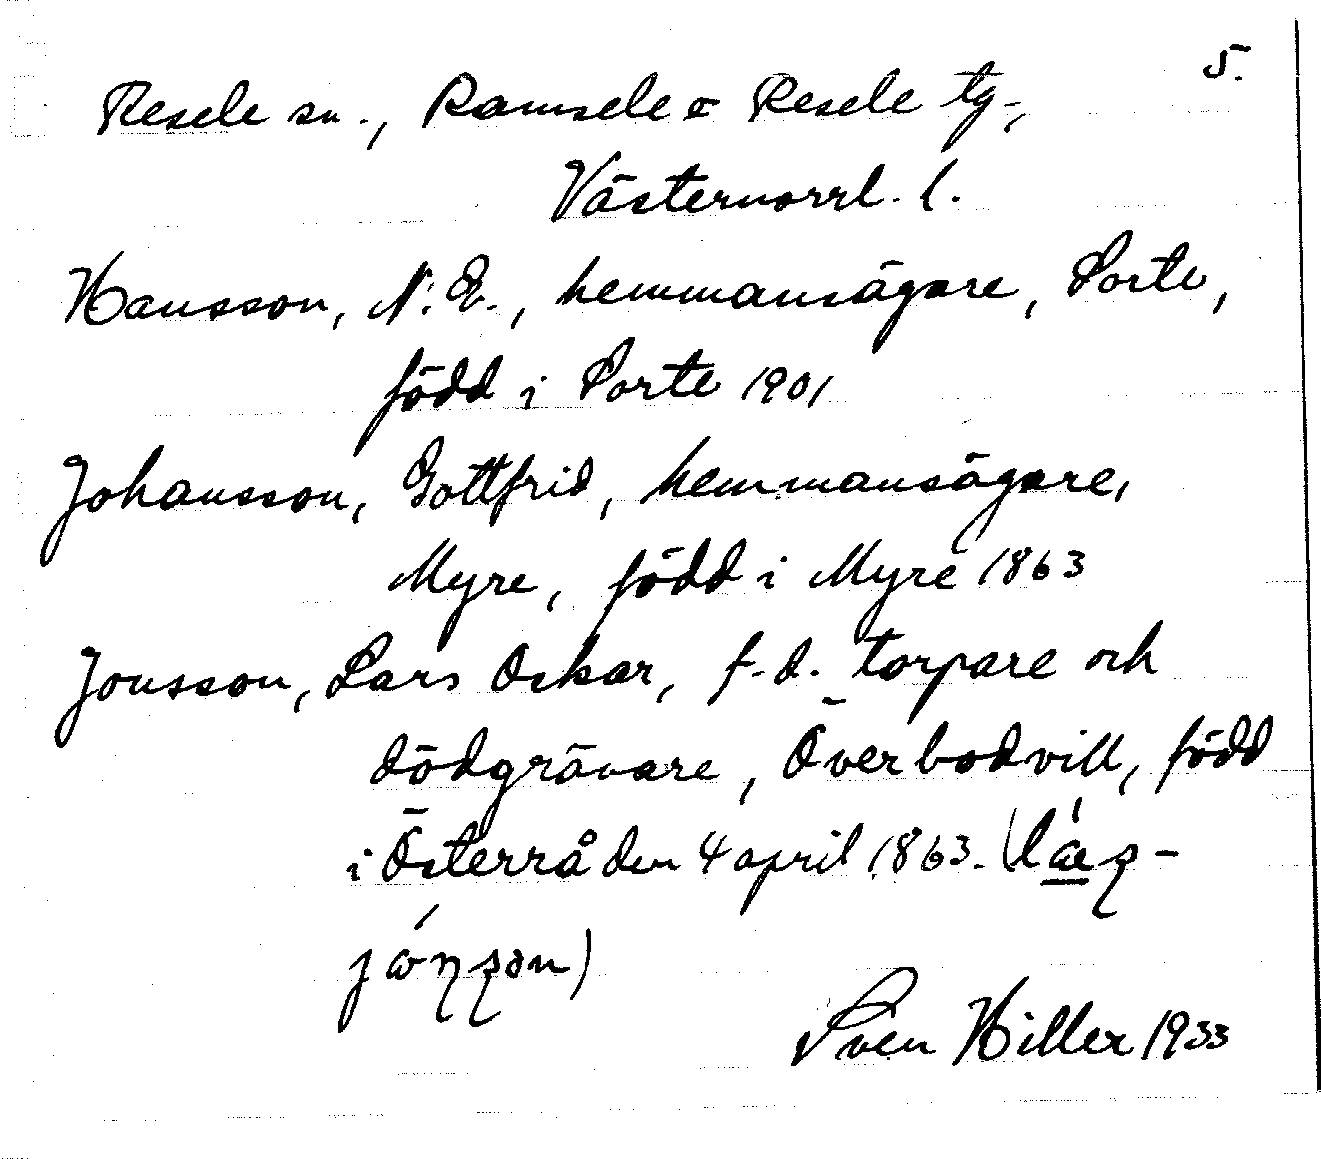 5.
Resele sn., Ramsele o Resele tg.,
Västernorrl. l.
Hansson, N. E., hemmansägare, Sorte,
född i Sorte 1901
Johansson, Gottfrid, hemmansägare,
Myre, född i Myre 1863
Jonsson, Lars Oskar, f.d. torpare och
dödgrävare, Överbodvill, född
i Österrå den 4 april 1863. (
Sven Hiller 1933